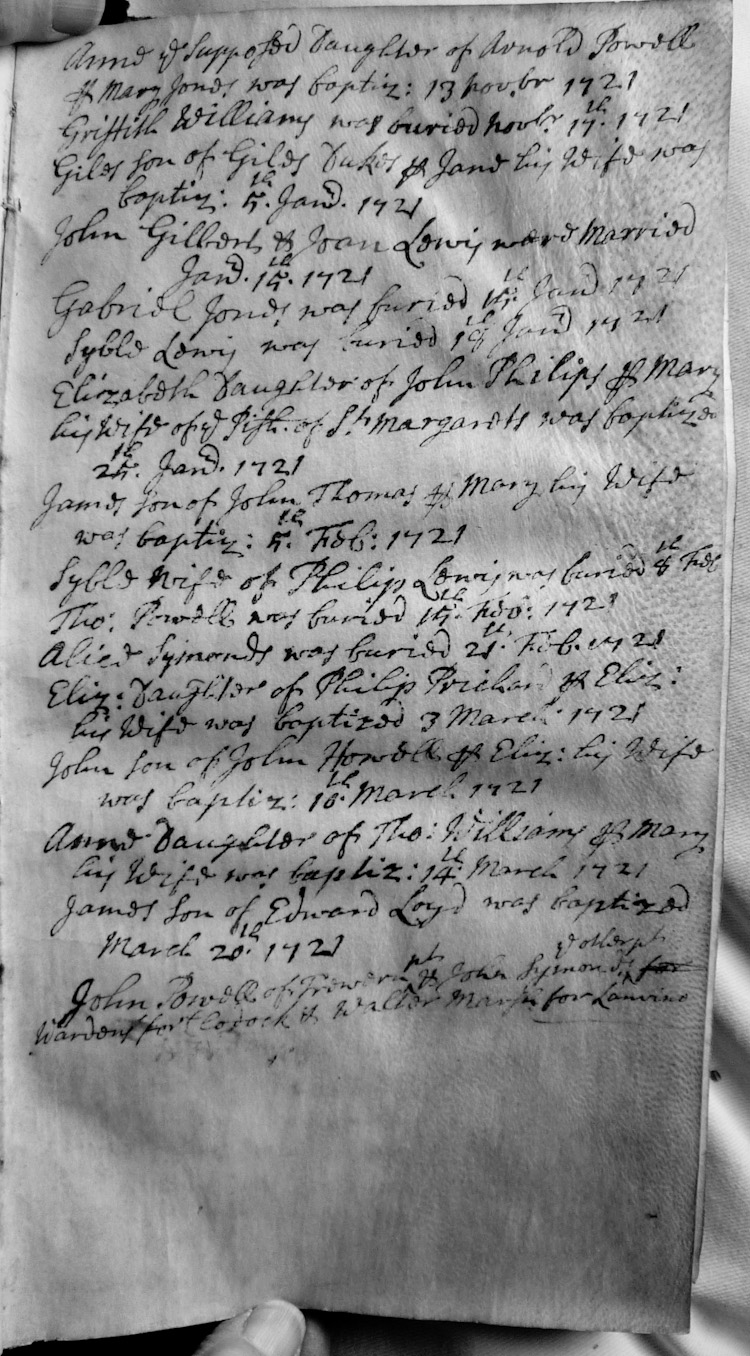 Anne ye Supposed Daughter of Arnold Powell
& Mary Jones was baptiz: 13 Novbr 1721
Griffith Williams was buried Novbr 17th. 1721
Giles Son of Giles Dukes & Jane his Wife was
baptiz: 5th. Jand. 1721
John Gilbert & Joan Lewis were Married
Jand. 15th. 1721
Gabriel Jones was buried 15th Jand 1721
Syble Lewis was buried 18th Jand 1721
Elizabeth Daughter of John Philips & Mary
his Wife of ye Pish. of St Margarets was baptized
25th. Jand. 1721
James Son of John Thomas & Mary his Wife
was baptiz: 5th. Feb: 1721
Syble Wife of Philip Lewis was buried 8th Feb
Tho: Powell was buried 15th. Feb: 1721
Alice Symonds was buried 21st. Feb. 1721
Eliz: Daughter of Philip Prichard & Eliz:
his Wife was baptized 3 March 1721
John Son of John Howell & Eliz: his Wife
was baptiz: 10th. March 1721
Anne Daughter of Tho: Williams & Mary
his Wife was baptiz: 14th. March 1721
James Son of Edward Loyd was baptized
March 20th. 1721
ye other pt
John Powell of pt & John Symonds for
Wardens for Clodock & Walter Marsh for Lanvino